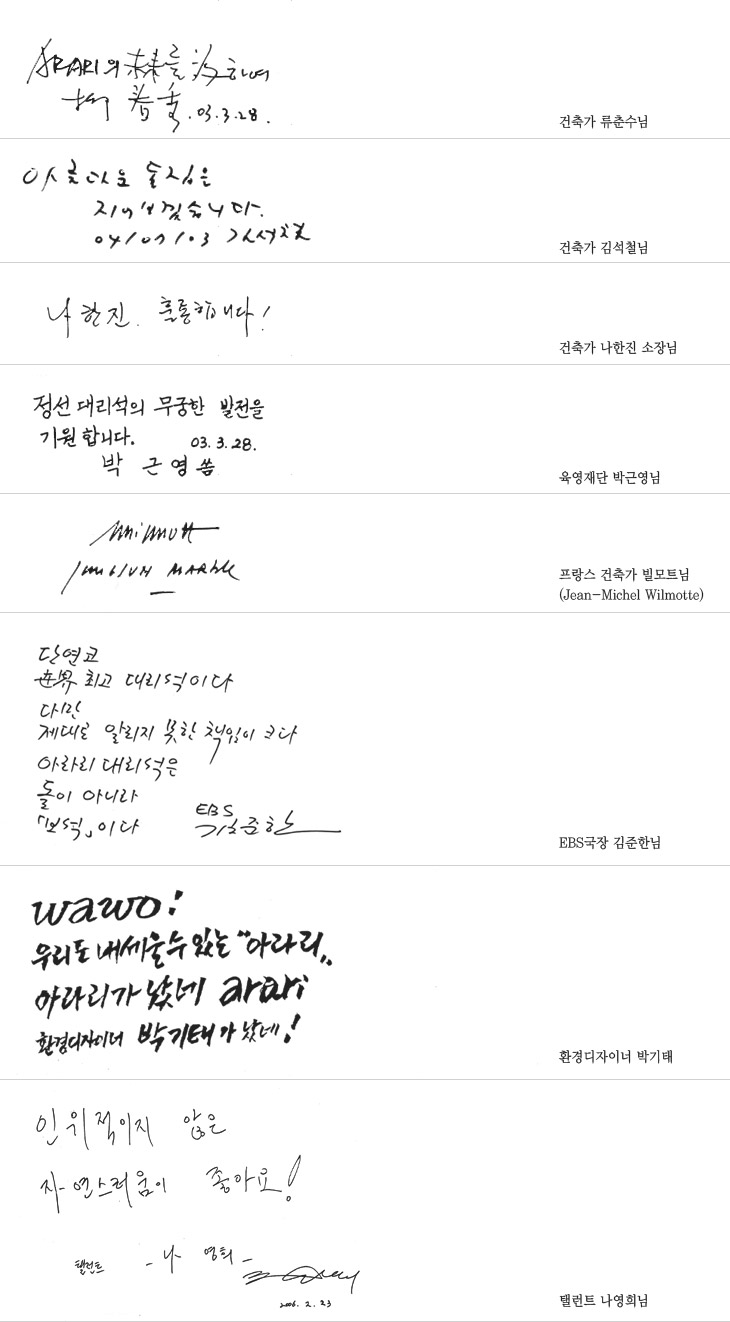 ARARI의 未來를 爲하여
春秀. 03.3.28.
건축가 류춘수님
아름다운 돌집은
04/07/03 김석철
건축가 김석철님
나한진. 훌륭합니다!
건축가 나한진 소장님
정선 대리석의 무궁한 발전을
기원합니다. 03.3.28.
박근영 씀
육영재단 박근영님
MARBLE
프랑스 건축가 빌모트님
(Jean-Michel Wilmotte)
단연코
世界 최고 대리석이다
다만
제대로 알리지 못한 책임이 크다
아라리 대리석은
돌이 아니라
「보석」이다 EBS 김준한
EBS국장 김준한님
wawo!
우리도 내세울 수 있는 "아라리„
아라리가 났네 arari
환경디자이너 박기태가 났네!
환경디자이너 박기태
인위적이지 않은
자연스러움이 좋아요!
탤런트 - 나 영희 -
2006. 2. 23
탤런트 나영희님